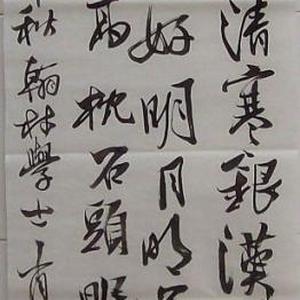 清寒銀漢
好明月明
高枕石頭眠
秋翰林學士肯